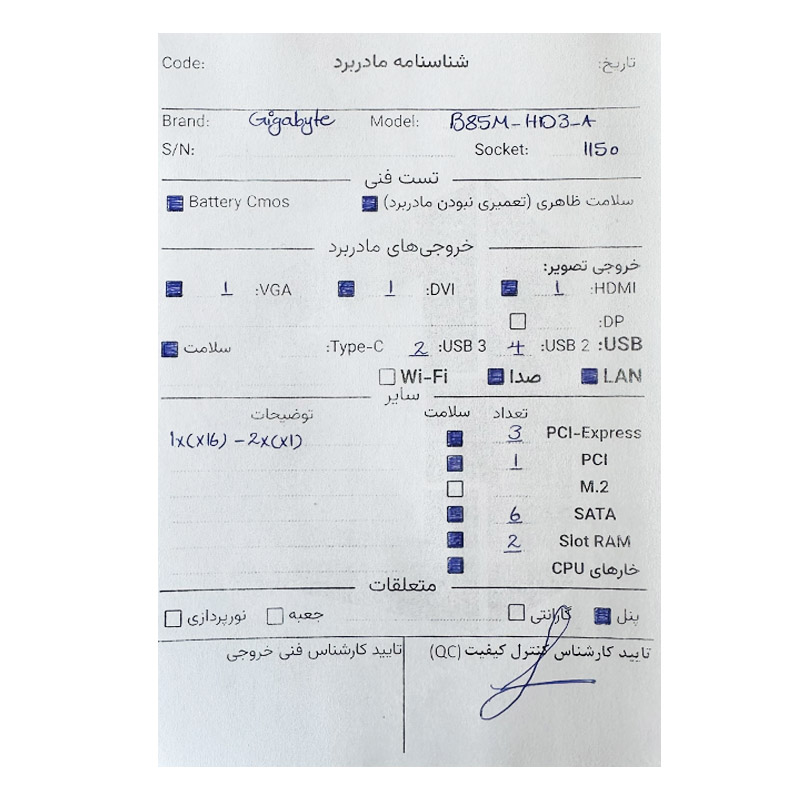 Code: شناسنامه مادربرد تاریخ:
Brand: Gigabyte Model: B85M-HD3-A
S/N: Socket: 1150
تست فنی
سلامت ظاهری (تعمیری نبودن مادربرد) Battery Cmos
خروجی‌های مادربرد
خروجی تصویر:
HDMI: 1 DVI: 1 VGA: 1
DP:
USB: USB 2: 4 USB 3: 2 Type-C: سلامت
LAN صدا Wi-Fi
سایر
تعداد سلامت توضیحات
PCI-Express 3 1x(x16) - 2x(x1)
PCI 1
M.2
SATA 6
Slot RAM 2
خارهای CPU
متعلقات
پنل گارانتی جعبه نورپردازی
تایید کارشناس کنترل کیفیت (QC) تایید کارشناس فنی خروجی